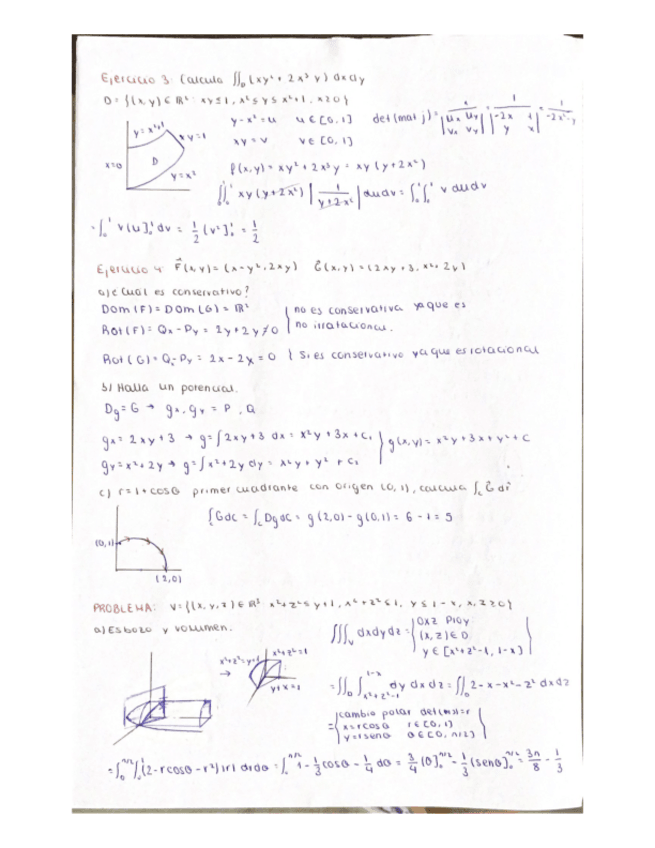 Ejercicio 3: Calcula ∬_D (xy² + 2x³y) dxdy
D = {(x,y) ∈ R² : xy ≤ 1, x² ≤ y ≤ x²+1, x ≥ 0}
y = x²+1
xy = 1
x=0
D
y = x²
y - x² = u   u ∈ [0,1]   det(mat j) = 1/|ux uy / vx vy| = 1/|-2x 1 / y x| = 1/(-2x²-y)
xy = v   v ∈ [0,1]
f(x,y) = xy² + 2x³y = xy (y+2x²)
∫₀¹∫₀¹ xy (y+2x²) |1/(y+2x²)| dudv = ∫₀¹∫₀¹ v dudv
= ∫₀¹ v [u]₀¹ dv = 1/2 [v²]₀¹ = 1/2
Ejercicio 4: F⃗(x,y) = (x-y², 2xy)   G⃗(x,y) = (2xy+3, x²+2y)
a) ¿Cuál es conservativo?
Dom(F) = Dom(G) = R²
Rot(F) = Qx - Py = 2y + 2y ≠ 0
no es conservativa ya que es
no irrotacional.
Rot(G) = Qx - Py = 2x - 2x = 0 { Si es conservativo ya que es rotacional
b) Halla un potencial.
Dg = G → gx, gy = P, Q
gx = 2xy+3 → g = ∫2xy+3 dx = x²y + 3x + C₁
gy = x²+2y → g = ∫x²+2y dy = x²y + y² + C₁
g(x,y) = x²y + 3x + y² + C
c) r = 1 + cosθ primer cuadrante con origen (0,1), calcula ∫_C G⃗ dr⃗
(0,1)
(2,0)
∫_C Gdc = ∫_C Dgdc = g(2,0) - g(0,1) = 6 - 1 = 5
PROBLEMA: V = {(x,y,z) ∈ R³ x²+z² ≤ y+1, x²+z² ≤ 1, y ≤ 1-x, x,z ≥ 0}
a) Esbozo y volumen.
x²+z²=y+1
→
x²+z²=1
y+x=1
∭_V dxdydz = {OXZ Proy
(x,z) ∈ D
y ∈ [x²+z²-1, 1-x]}
= ∬_D ∫_{x²+z²-1}^{1-x} dy dx dz = ∬_D 2-x-x²-z² dxdz
= {cambio polar det(m) = r
x = rcosθ   r ∈ [0,1]
y = rsenθ   θ ∈ [0, π/2]}
= ∫₀^{π/2}∫₀¹ (2 - rcosθ - r²) |r| drdθ = ∫₀^{π/2} 1 - 1/3 cosθ - 1/4 dθ = 3/4 [θ]₀^{π/2} - 1/3 [senθ]₀^{π/2} = 3π/8 - 1/3